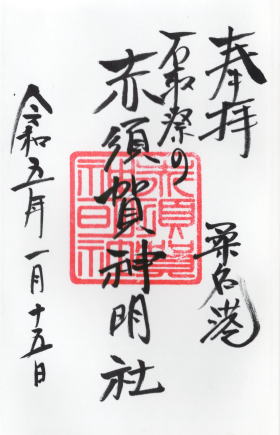 奉拝
桑名港
石取祭の
赤須賀神明社
赤須賀
神明社
令和五年一月十五日